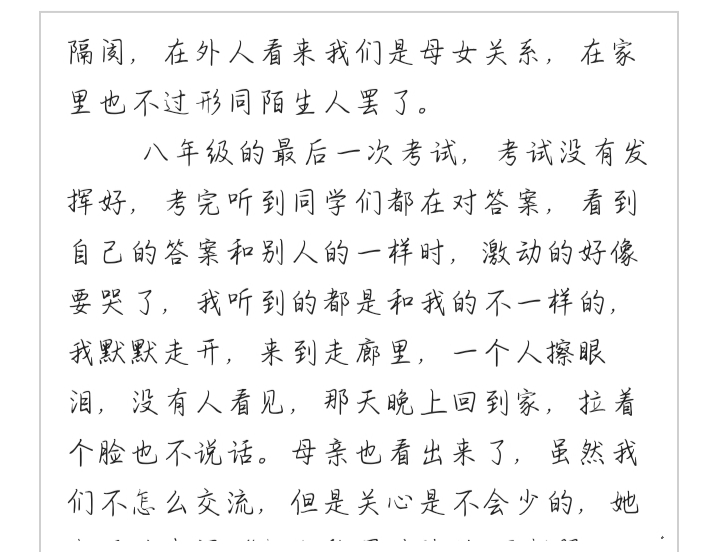 隔阂，在外人看来我们是母女关系，在家
里也不过形同陌生人罢了。
八年级的最后一次考试，考试没有发
挥好，考完听到同学们都在对答案，看到
自己的答案和别人的一样时，激动的好像
要哭了，我听到的都是和我的不一样的，
我默默走开，来到走廊里，一个人擦眼
泪，没有人看见，那天晚上回到家，拉着
个脸也不说话。母亲也看出来了，虽然我
们不怎么交流，但是关心是不会少的，她